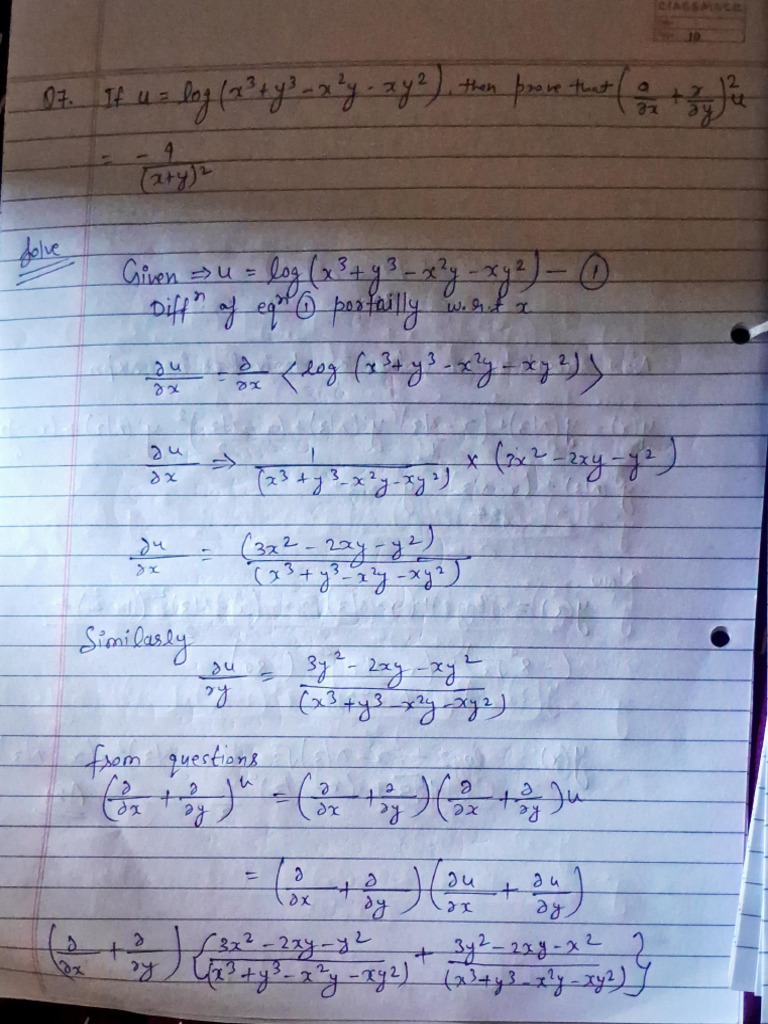 CLASSMATE
10
Q7. If u = log(x³+y³-x²y-xy²), then prove that (∂/∂x + ∂/∂y)² u
= -4/(x+y)²
Solve
Given ⇒ u = log(x³+y³-x²y-xy²) - ①
Diffⁿ of eqⁿ ① partailly w.r.t x
∂u/∂x = ∂/∂x <log (x³+y³-x²y-xy²)>
∂u/∂x ⇒ 1/(x³+y³-x²y-xy²) × (3x²-2xy-y²)
∂u/∂x = (3x²-2xy-y²)/(x³+y³-x²y-xy²)
Similarly
∂u/∂y = 3y²-2xy-xy²/(x³+y³-x²y-xy²)
from questions
(∂/∂x + ∂/∂y)ᵘ = (∂/∂x + ∂/∂y)(∂/∂x + ∂/∂y)u
= (∂/∂x + ∂/∂y)(∂u/∂x + ∂u/∂y)
(∂/∂x + ∂/∂y) {3x²-2xy-y²/(x³+y³-x²y-xy²) + 3y²-2xy-x²/(x³+y³-x²y-xy²)}